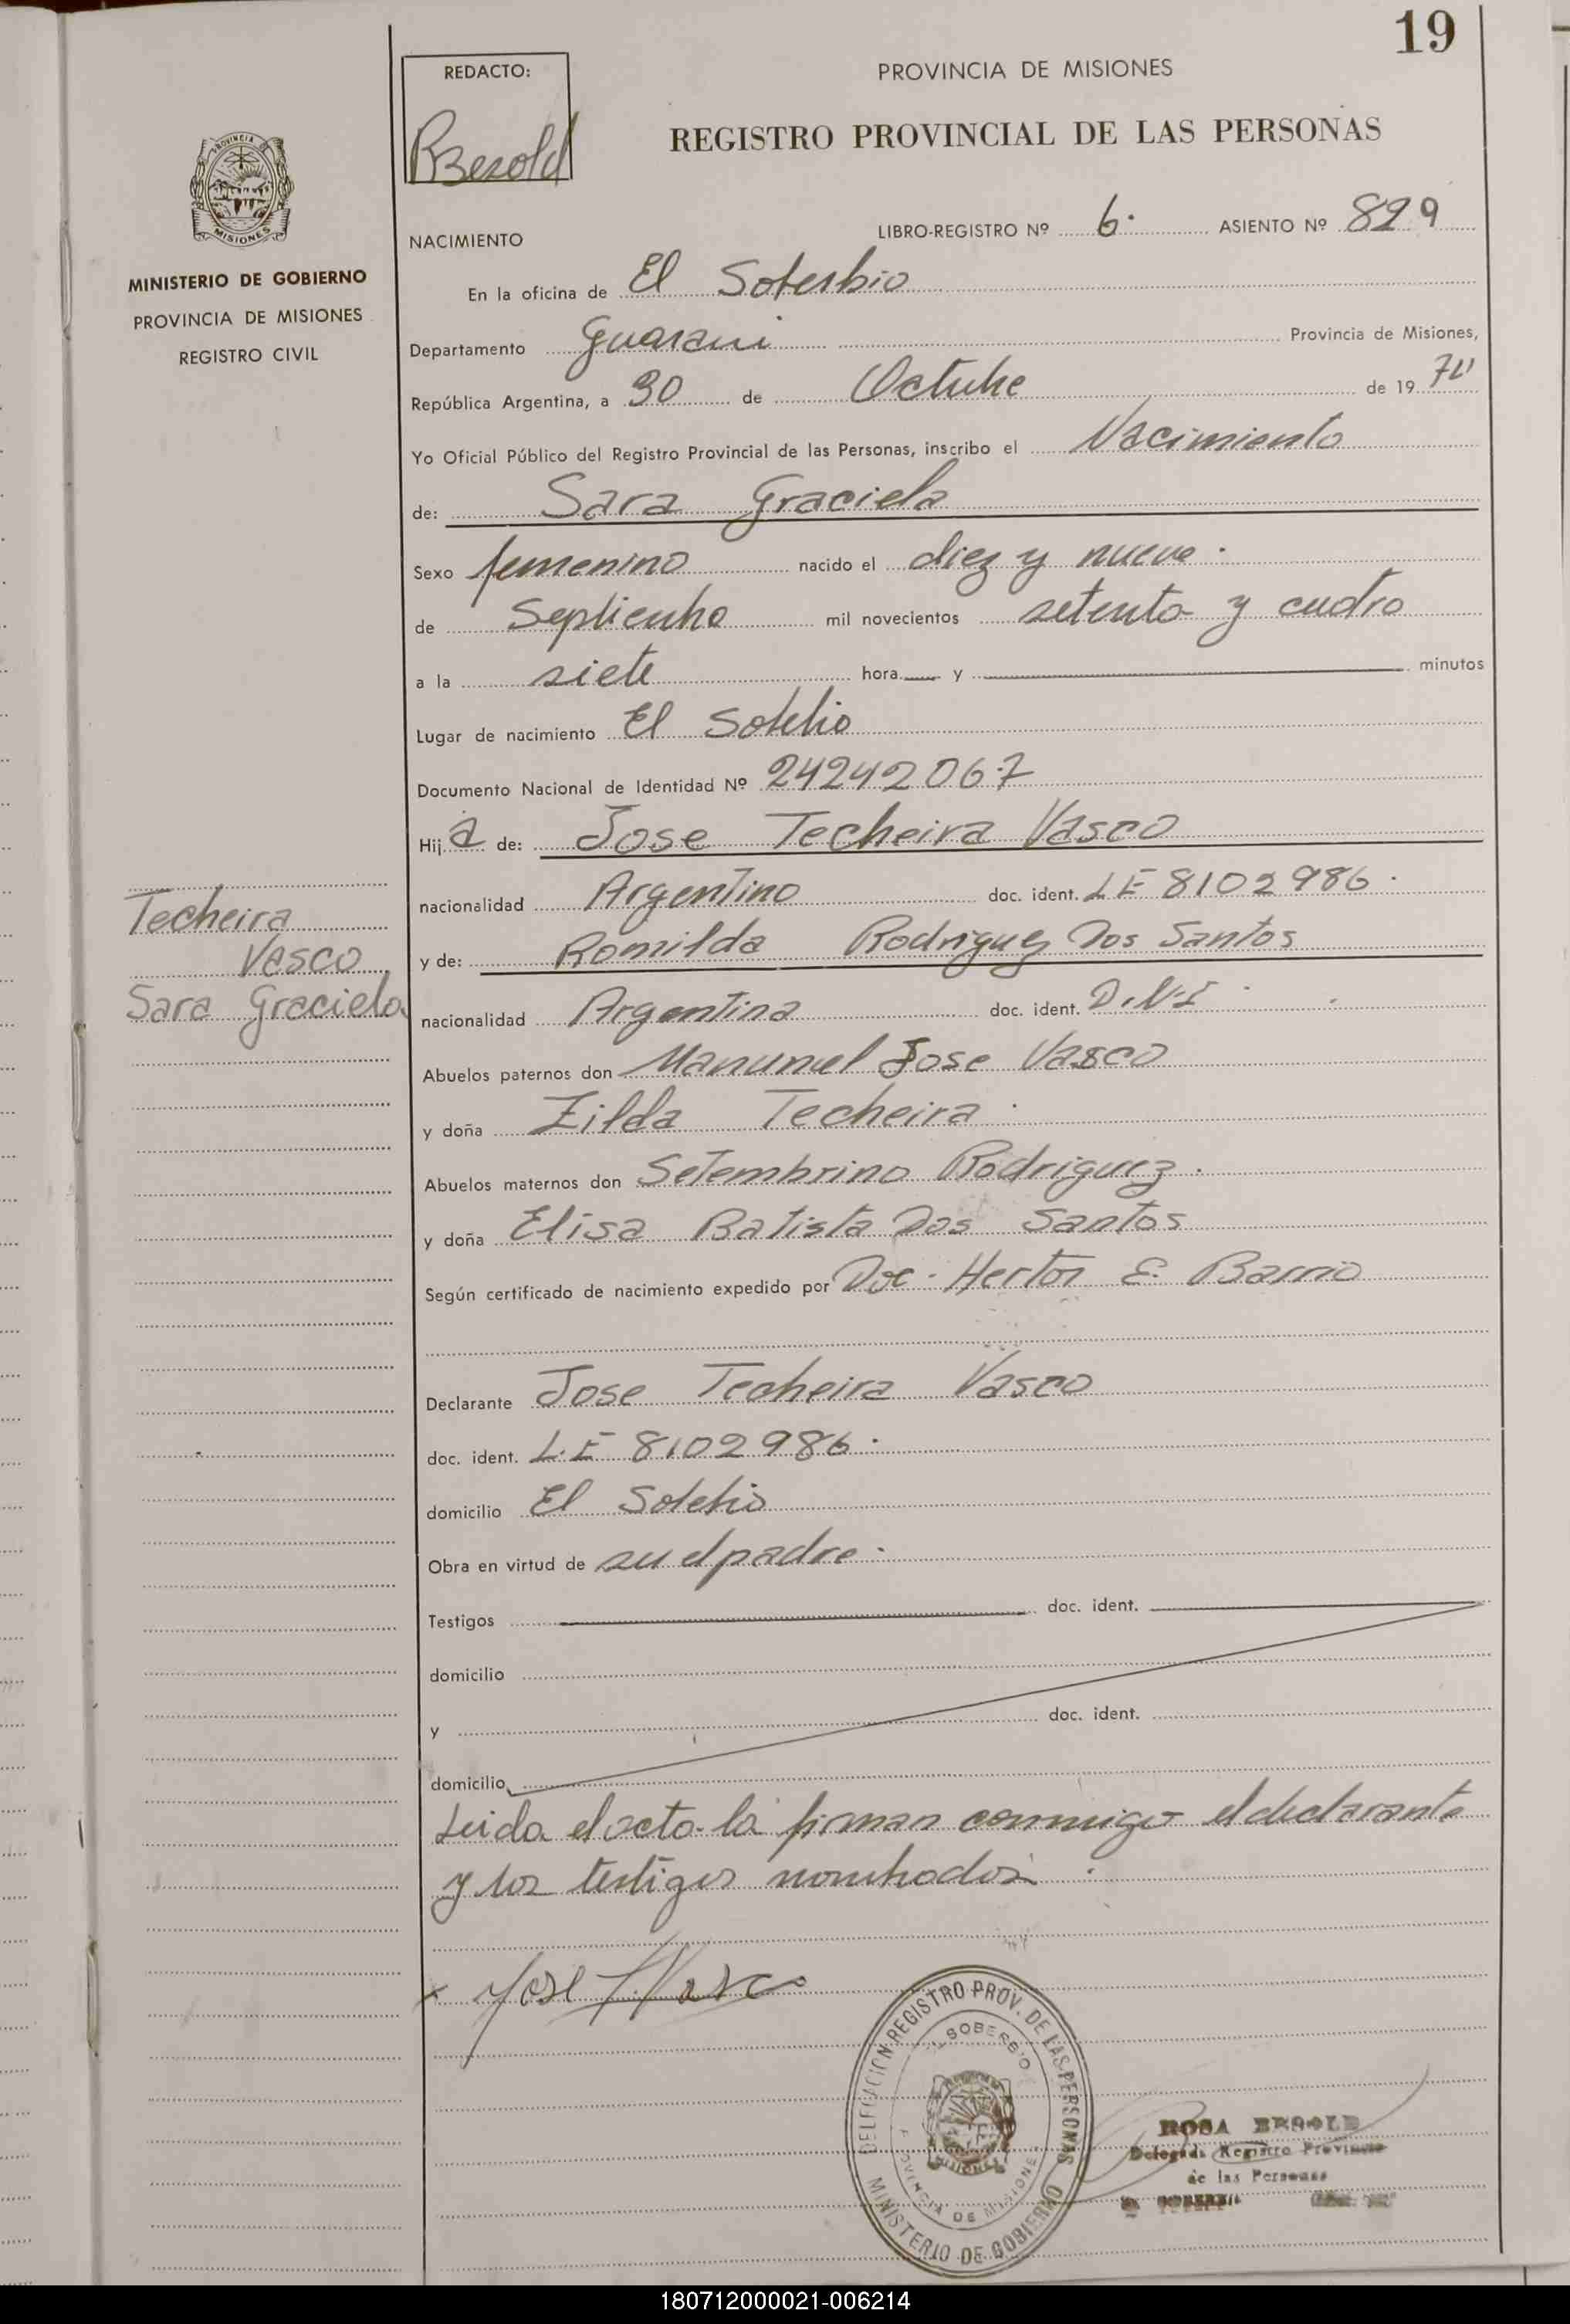 19
REDACTO:
RBesold
PROVINCIA DE MISIONES
REGISTRO PROVINCIAL DE LAS PERSONAS
PROVINCIA
MISIONES
MINISTERIO DE GOBIERNO
PROVINCIA DE MISIONES
REGISTRO CIVIL
NACIMIENTO
LIBRO-REGISTRO Nº 6. ASIENTO Nº 829
En la oficina de El Soberbio
Departamento Guarani Provincia de Misiones,
República Argentina, a 30 de Octubre de 19 74
Yo Oficial Público del Registro Provincial de las Personas, inscribo el Nacimiento
de: Sara Graciela
Sexo femenino nacido el diez y nueve.
de Septiembre mil novecientos setenta y cuatro
a la siete hora y minutos
Lugar de nacimiento El Soberbio
Documento Nacional de Identidad Nº 24242067
Hij a de: Jose Techeira Vasco
nacionalidad Argentino doc. ident. LE 8102986.
Techeira
Vasco
Sara Graciela
y de: Romilda Rodriguez Dos Santos
nacionalidad Argentina doc. ident. D.N.I
Abuelos paternos don Manumel Jose Vasco
y doña Zilda Techeira.
Abuelos maternos don Setembrino Rodriguez.
y doña Elisa Batista Dos Santos
Según certificado de nacimiento expedido por Doc. Hertor E. Barrio
Declarante Jose Techeira Vasco
doc. ident. L.E 8102986.
domicilio El Soberbio
Obra en virtud de su el padre.
Testigos doc. ident.
domicilio
y doc. ident.
domicilio
Leida el acta la firman conmigo el declarante
y los testigos nombrados.
x Jose T. Vasco
DELEGACION REGISTRO PROV. DE LAS PERSONAS
EL SOBERBIO
MISIONES
PROVINCIA DE MISIONES
MINISTERIO DE GOBIERNO
ROSA BESOLD
Delegada Registro Provincial
de las Personas
180712000021-006214